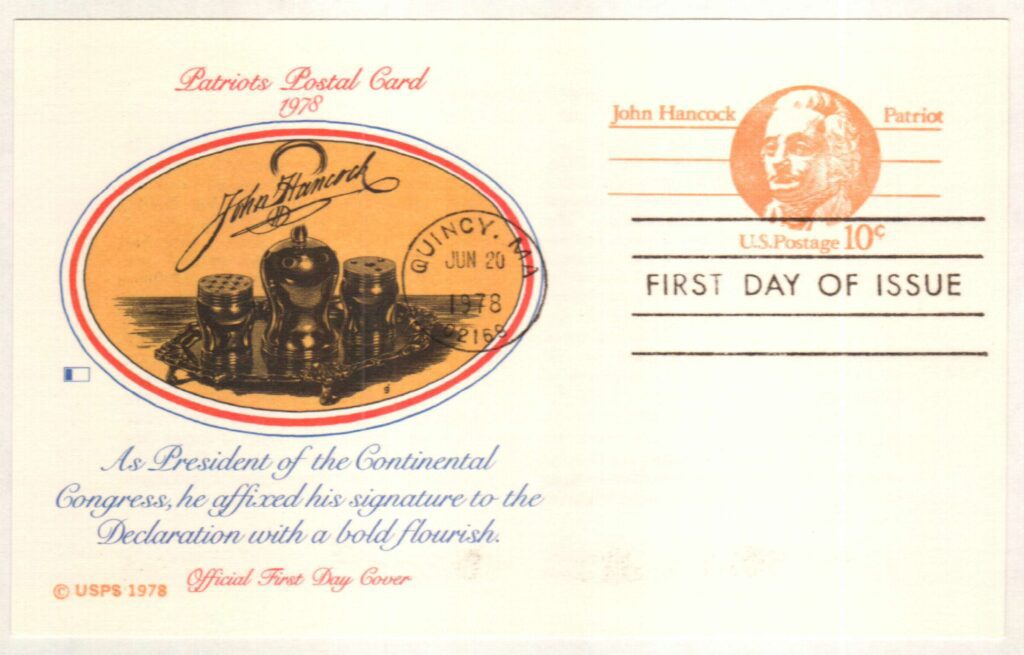 Patriots Postal Card
1978
John Hancock
QUINCY, MA
JUN 20
1978
22169
As President of the Continental
Congress, he affixed his signature to the
Declaration with a bold flourish.
Official First Day Cover
© USPS 1978
John Hancock Patriot
U.S. Postage 10¢
FIRST DAY OF ISSUE